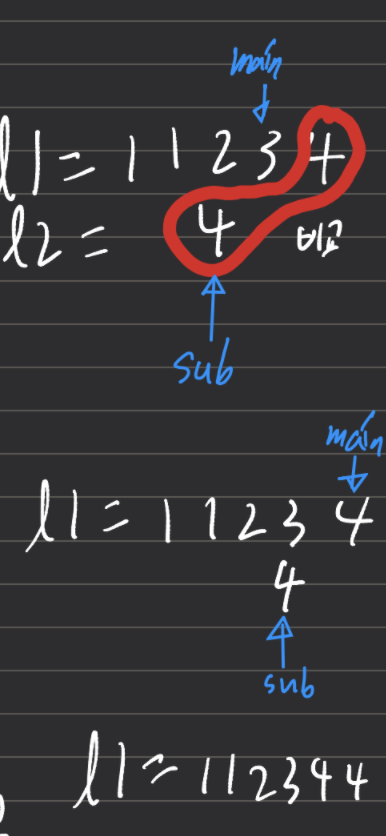 main
l1 = 1 1 2 3 4
l2 = 4 비교
sub
main
l1 = 1 1 2 3 4
4
sub
l1 = 1 1 2 3 4 4